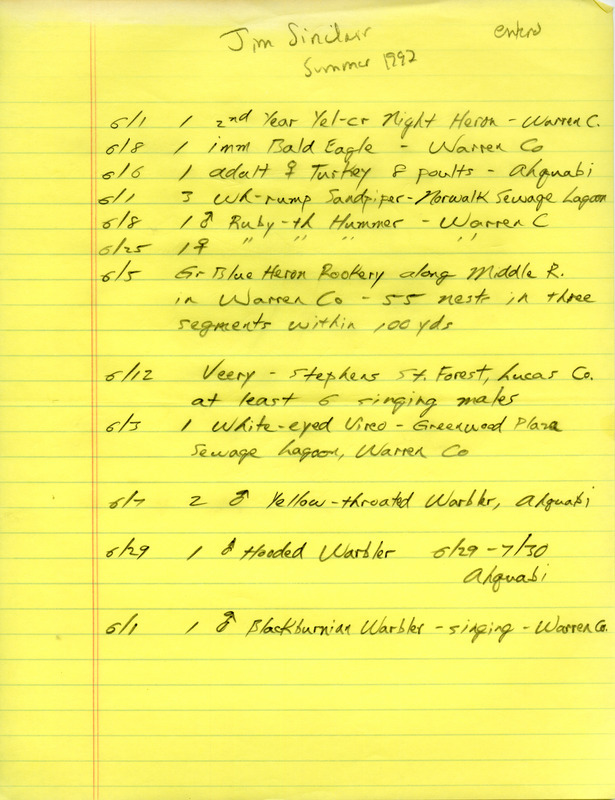 Jim Sinclair
entered
Summer 1992
6/1 1 2nd Year Yel-cr Night Heron - Warren C.
6/8 1 imm Bald Eagle - Warren Co
6/6 1 adult ♀ Turkey 8 poults - Ahquabi
6/1 3 Wh-rump Sandpiper - Norwalk Sewage Lagoon
6/8 1 ♂ Ruby-th Hummer - Warren C
6/25 1 ♀ " " " "
6/5 Gr Blue Heron Rookery along Middle R.
in Warren Co - 55 nests in three
segments within 100 yds
6/12 Veery - Stephens St. Forest, Lucas Co.
at least 6 singing males
6/3 1 White-eyed Vireo - Greenwood Plaza
Sewage Lagoon, Warren Co
6/7 2 ♂ Yellow-throated Warbler, Ahquabi
6/29 1 ♂ Hooded Warbler 6/29 - 7/30
Ahquabi
6/1 1 ♂ Blackburnian Warbler - singing - Warren Co.